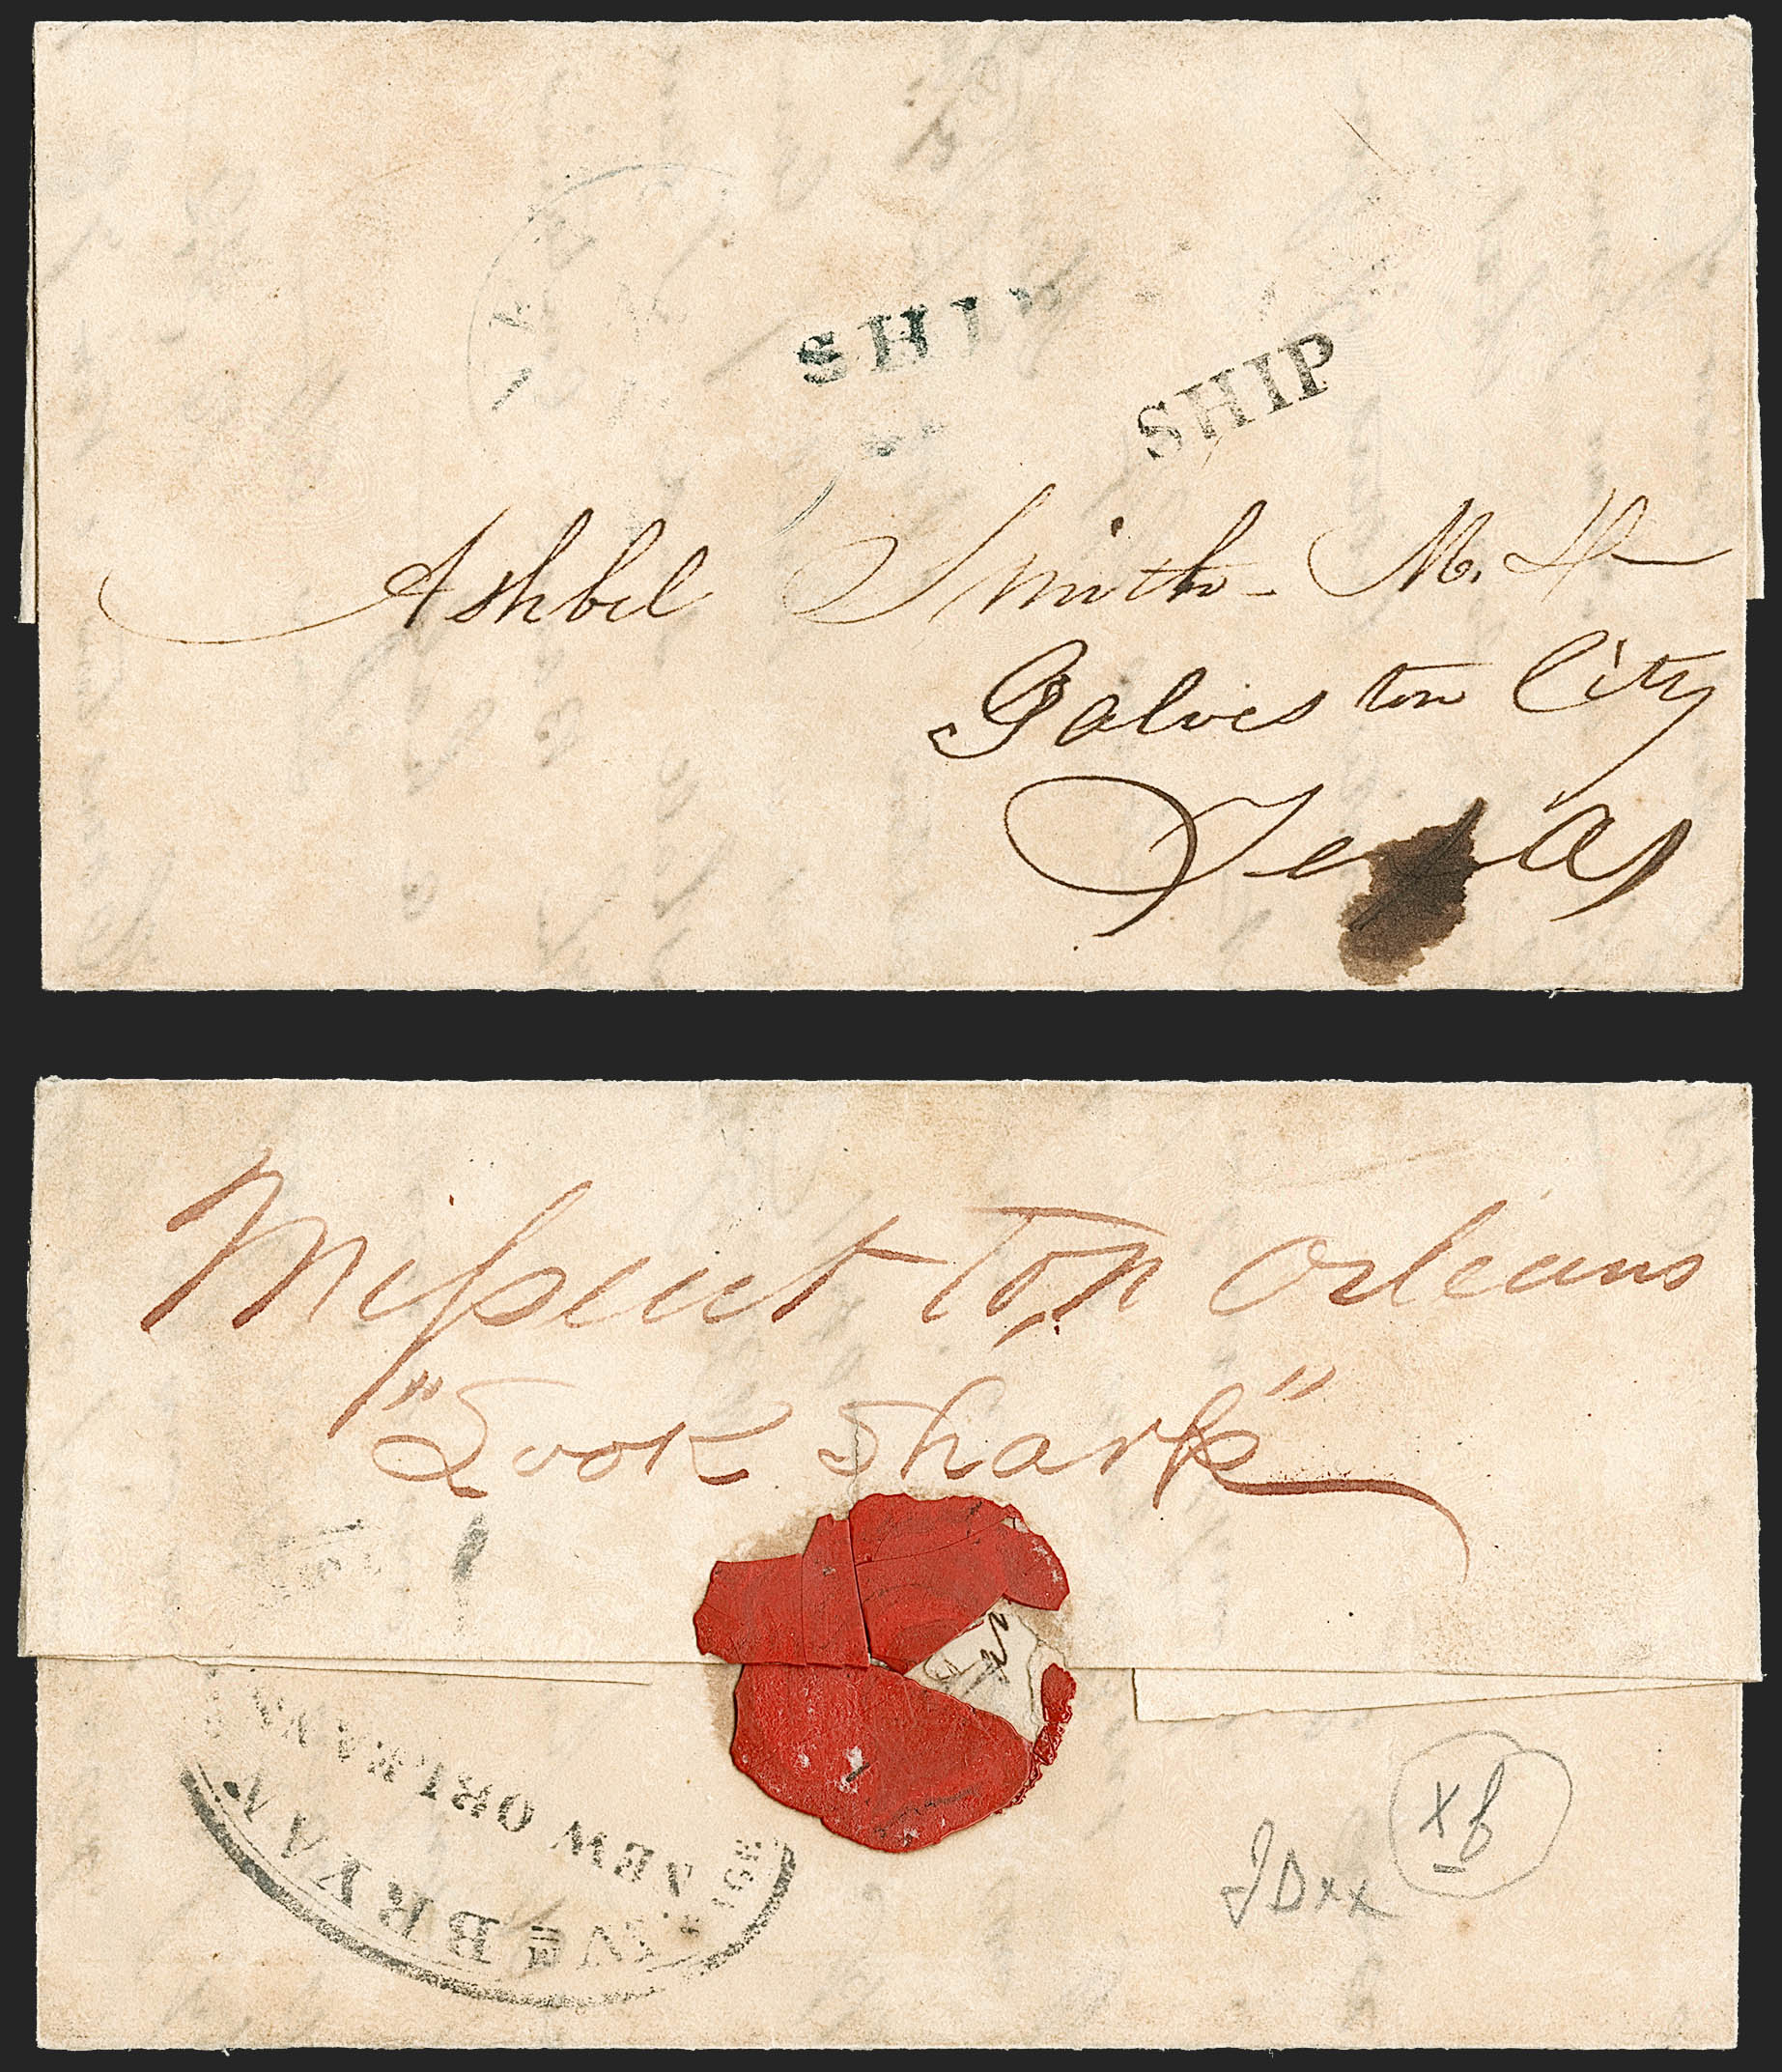 SHIP
SHIP
Ashbel Smith - M. D
Galveston City
Texas
Missent To N Orleans
"Look Sharp"
BRYAN
NEW ORLEANS
xb
JDxx